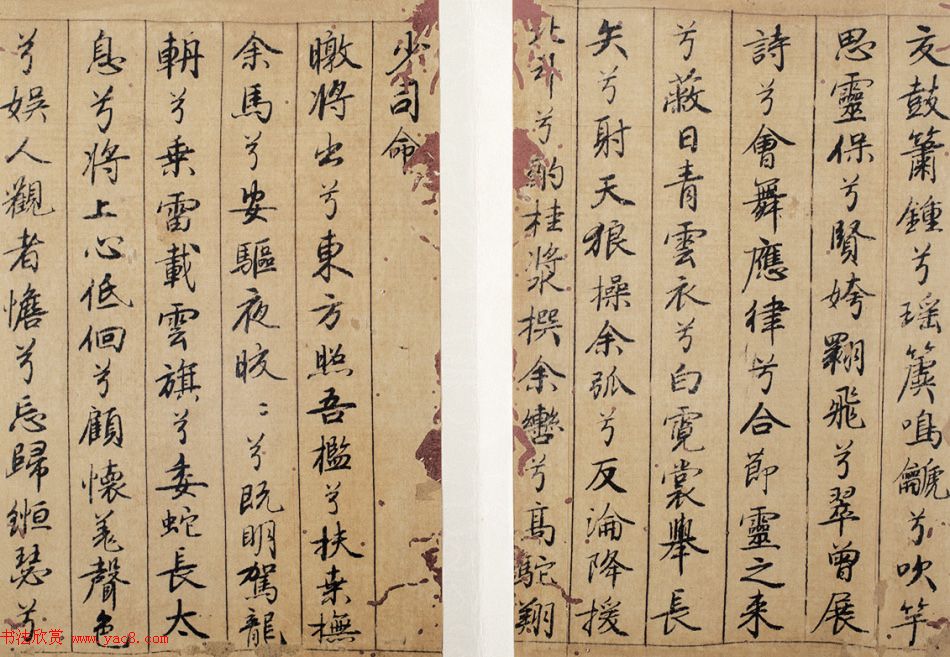 少司命
暾將出兮東方照吾檻兮扶桒撫
余馬兮安驅夜晈〻兮既明駕龍
輈兮乗雷載雲旗兮委蛇長太
息兮將上心低佪兮顧懷羌聲色
兮娛人觀者憺兮忘歸緪瑟兮
交鼓簫鍾兮瑶簴鳴䶵兮吹竽
思靈保兮賢姱翾飛兮翠曾展
詩兮會舞應律兮合節靈之来
兮蔽日青雲衣兮白霓裳舉長
矢兮射天狼操余弧兮反淪降援
北斗兮酌桂漿撰余轡兮高駝翔
书法欣赏 www.yac8.com